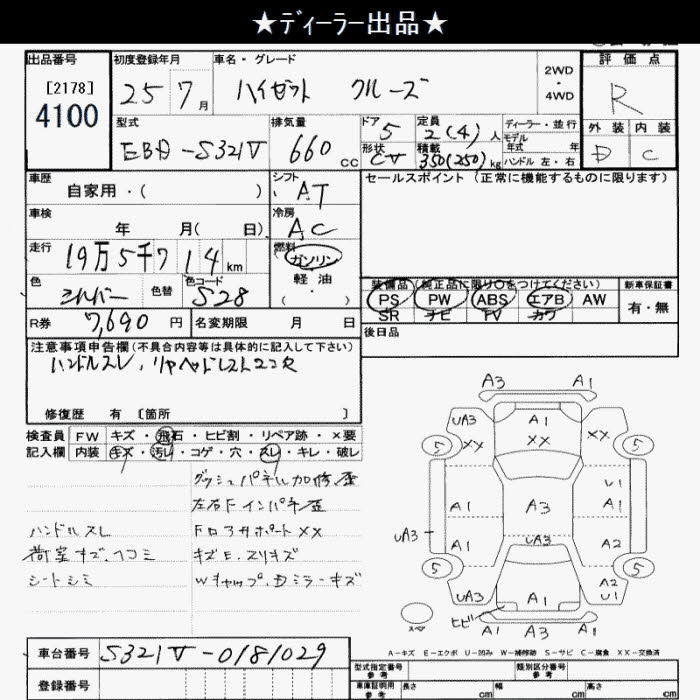 ★ディーラー出品★
出品番号 初度登録年月 車名・グレード 2WD・4WD 評価点
[2178] 4100 25 7月 ハイゼット クルーズ R
型式 排気量 ドア 定員 ディーラー・並行 外装 内装
EBD-S321V 660 cc 5 2(4)人 モデル年式 年 D C
形状 積載 ハンドル 左・右
CV 350(250)kg
車歴 シフト セールスポイント(正常に機能するものに限ります)
自家用・( ) AT
車検 冷房
年 月( 日) AC
走行 燃料
19万5千714km ガソリン
色 色替 色コード 軽油
シルバー S28 ( ・ )
装備品(純正品に限り○をつけてください) 新車保証書
PS PW ABS エアB AW 有・無
SR ナビ TV カワ
R券 7,690円 名変期限 月 日 後日品
注意事項申告欄(不具合内容等は具体的に記入して下さい)
ハンドルスレ、リヤヘッドレストココ欠
修復歴 有 [箇所 ]
検査員 FW キズ・飛石・ヒビ割・リペア跡・×要
記入欄 内装 キズ・汚れ・コゲ・穴・スレ・キレ・破レ
ダッシュパネル加修歪
左右Fインパネ歪
ハンドルスレ FロアサポートXX
荷室キズ、ヘコミ キズE、スリキズ
シートシミ Wキャップ、Dミラーキズ
A3 A1
UA3 A1 XX
XX XX
5 5
U1
A1 A3 A1
UA3 UA3
A1 A2
5 5
A2
UA3 A1 U1
ヒビ
A1 A3 A1
スペ
A-キズ E-エクボ U-凹み W-補修跡 S-サビ C-腐食 XX-交換済
車台番号 S321V-0181029
型式指定番号 参考 類別区分番号 参考
登録番号 車庫証明用 参考 長さ cm 幅 cm 高さ cm